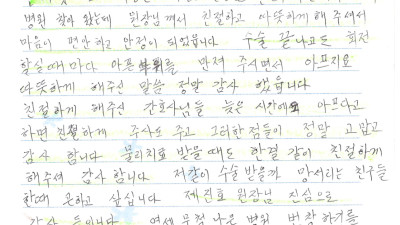 병원 찾아 왔는데 원장님 께서 친절하고 따뜻하게 해 주셔서
마음이 편안하고 안정이 되었읍니다 수술 끝나고도 회진
할실때 마다 아픈 부위를 만져 주시면서 아프지요
따뜻하게 해주신 말씀 정말 감사 했읍니다
친절하게 해주신 간호사님들 늦은 시간에도 아프다고
하면 친절하게 주사도 주고 그러한 점들이 정말 고맙고
감사 합니다 물리치료 받을때도 한결 같이 친절하게
해주셔 감사 합니다 저같이 수술 받을까 망서리는 친구들
한테 온하고 싶습니다 제진호 원장님 진심으로
감사 드립니다 연세 무척 나은 병원 번창 하기를